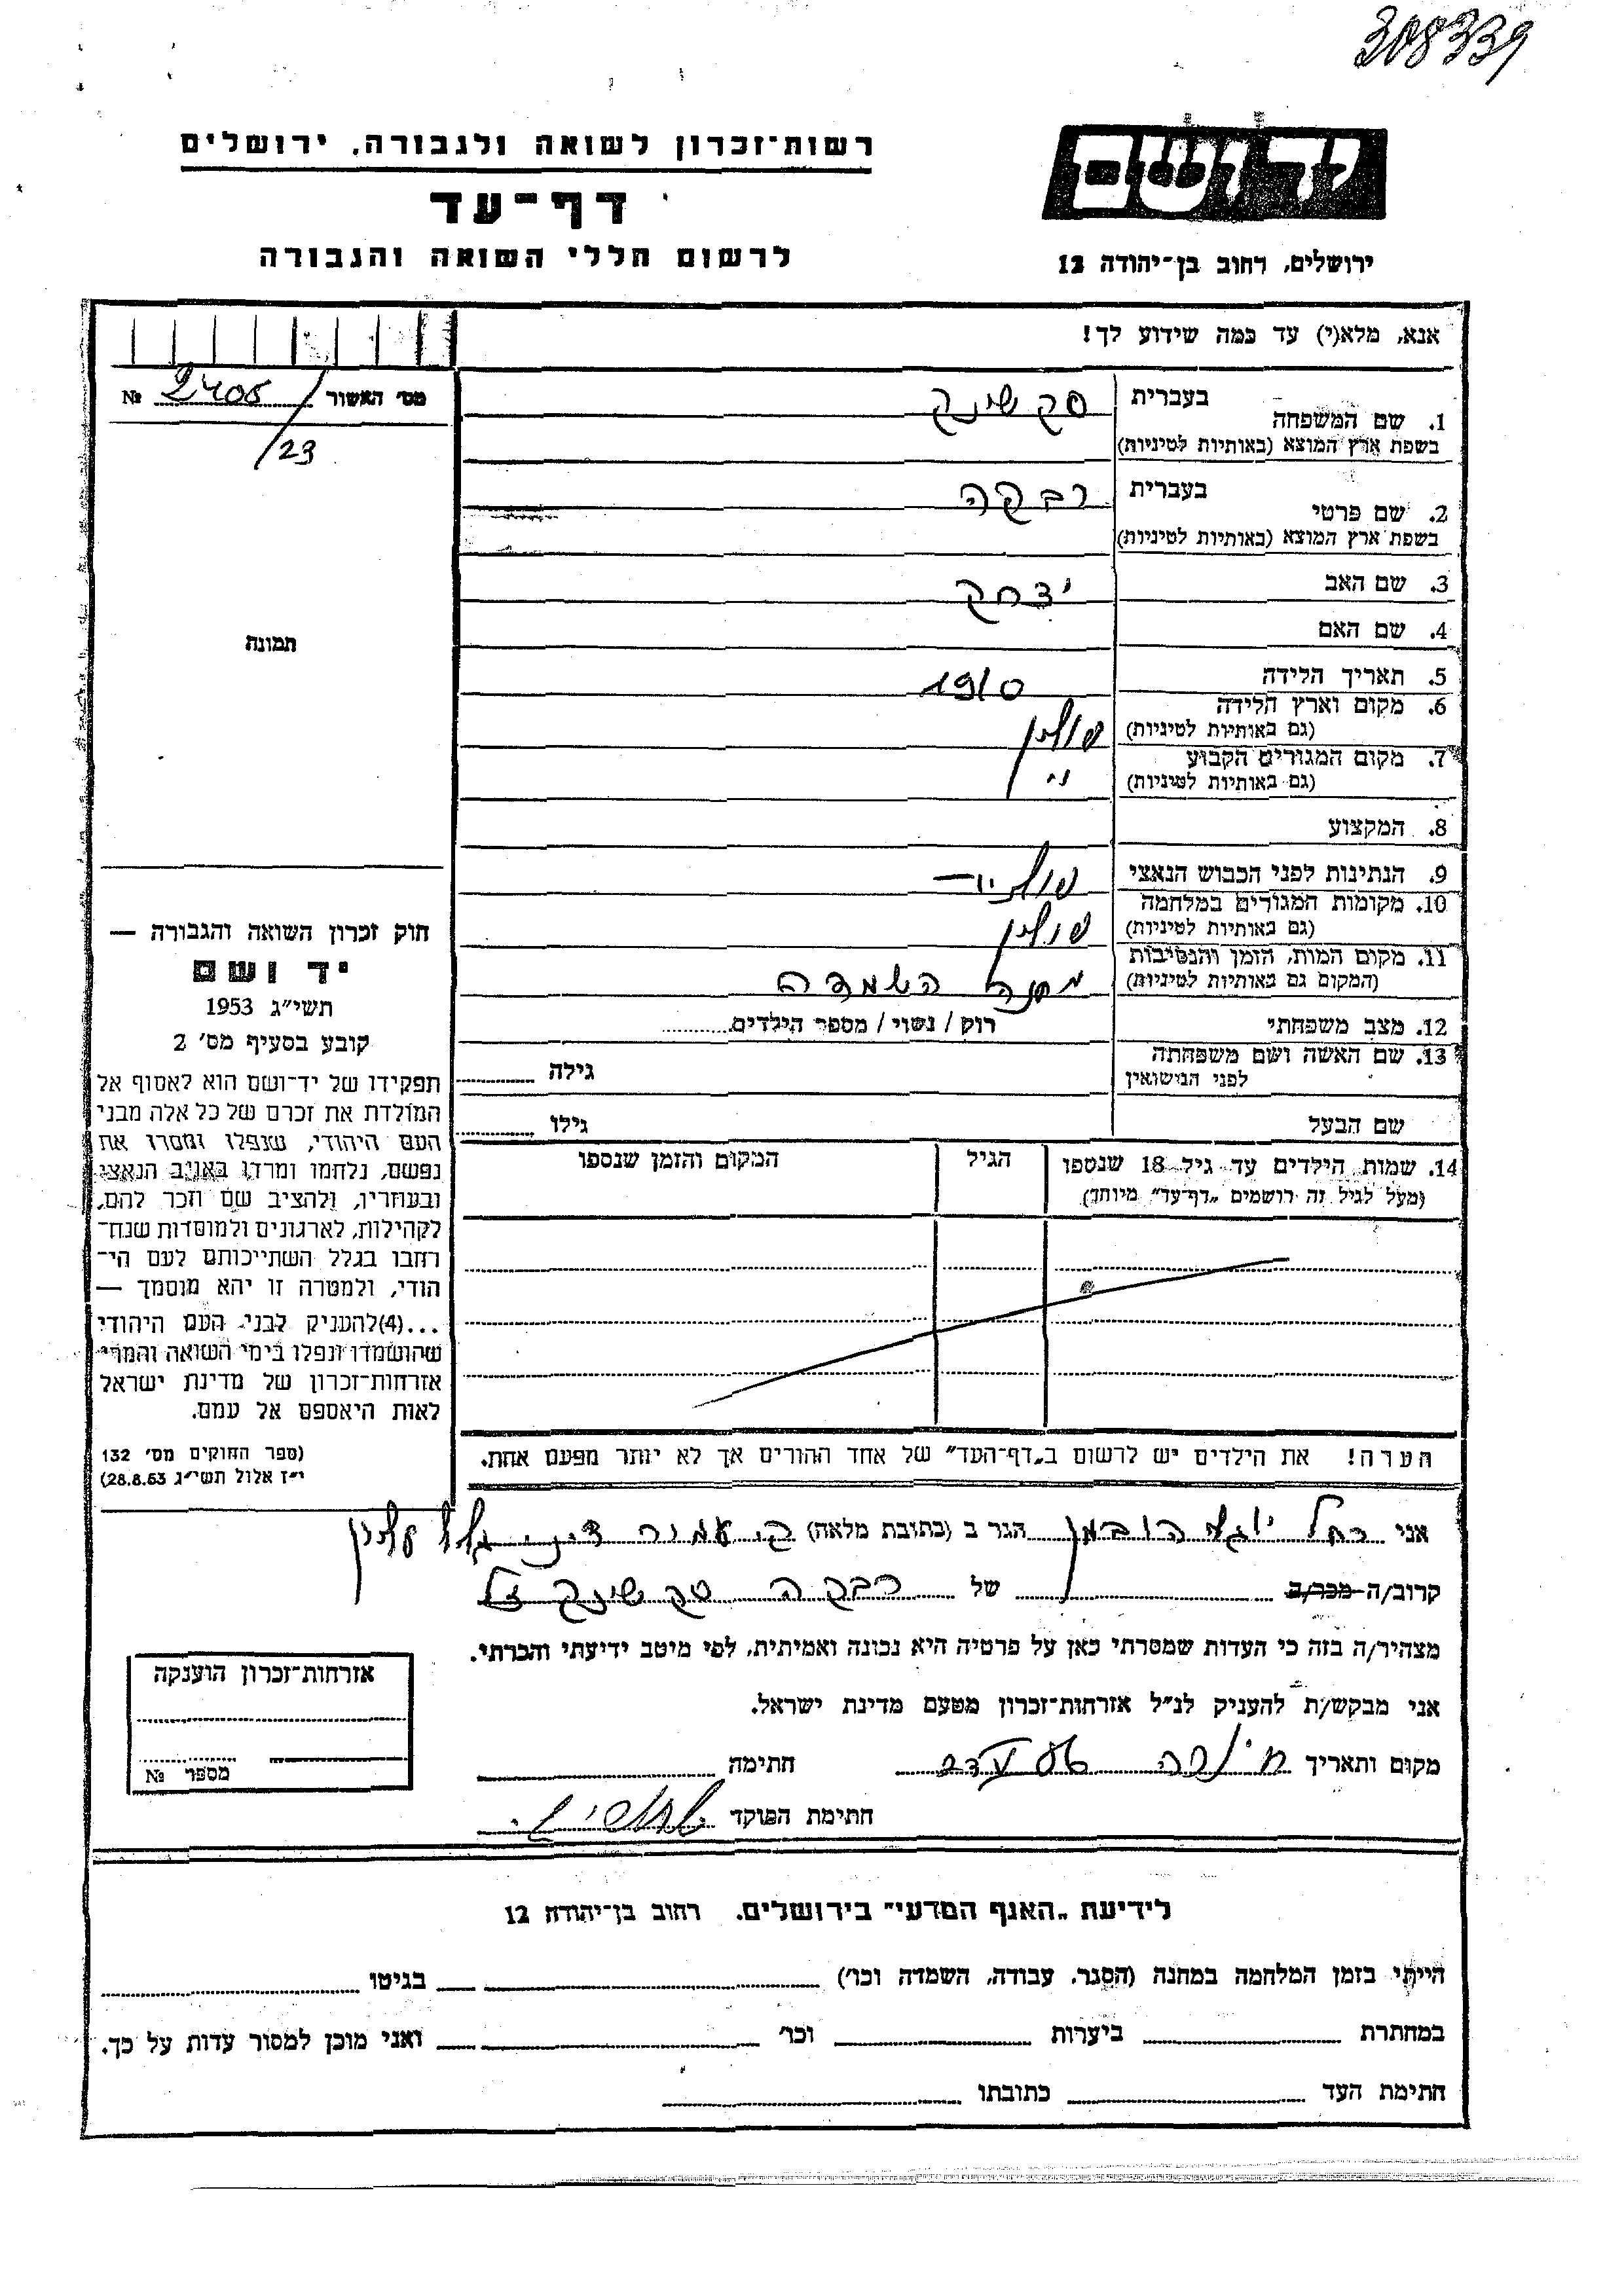 308339
רשות-זכרון לשואה ולגבורה, ירושלים
דף-עד
לרשום חללי השואה והגבורה
יד ושם
ירושלים, רחוב בן-יהודה 12
אנא, מלא(י) עד כמה שידוע לך!
מס׳ האשור 2405 №
/23
תמונה
1. שם המשפחה בעברית סקשינק
בשפת ארץ המוצא (באותיות לטיניות)
2. שם פרטי בעברית רבקה
בשפת ארץ המוצא (באותיות לטיניות)
3. שם האב יצחק
4. שם האם
5. תאריך הלידה 1910
6. מקום וארץ הלידה פולין
(גם באותיות לטיניות)
7. מקום המגורים הקבוע
(גם באותיות לטיניות)
8. המקצוע
9. הנתינות לפני הכבוש הנאצי
10. מקומות המגורים במלחמה פולין
(גם באותיות לטיניות)
11. מקום המות, הזמן והנסיבות מחנה השמדה
(המקום גם באותיות לטיניות)
12. מצב משפחתי רוק / נשוי / מספר הילדים
13. שם האשה ושם משפחתה גילה
לפני הנישואין
שם הבעל גילו
14. שמות הילדים עד גיל 18 שנספו הגיל המקום והזמן שנספו
(מעל לגיל זה רושמים „דף-עד״ מיוחד)
הערה! את הילדים יש לרשום ב„דף-העד״ של אחד ההורים אך לא יותר מפעם אחת.
חוק זכרון השואה והגבורה —
יד ושם
תשי״ג 1953
קובע בסעיף מס׳ 2
תפקידו של יד-ושם הוא לאסוף אל
המולדת את זכרם של כל אלה מבני
העם היהודי, שנפלו ומסרו את
נפשם, נלחמו ומרדו באויב הנאצי
ובעוזריו, ולהציב שם וזכר להם,
לקהילות, לארגונים ולמוסדות שנח-
רחבו בגלל השתייכותם לעם הי-
הודי, ולמטרה זו יהא מוסמך —
...(4)להעניק לבני העם היהודי
שהושמדו ונפלו בימי השואה והמרי
אזרחות-זכרון של מדינת ישראל
לאות היאספם אל עמם.
(ספר החוקים מס׳ 132
י״ז אלול תשי״ג 28.8.53)
אני רחל הובמן הגר ב (כתובת מלאה)
קרוב/ה מכר/ה של רבקה סקשינק ז״ל
מצהיר/ה בזה כי העדות שמסרתי כאן על פרטיה היא נכונה ואמיתית, לפי מיטב ידיעתי והכרתי.
אני מבקש/ת להעניק לנ״ל אזרחות-זכרון מטעם מדינת ישראל.
מקום ותאריך חתימה
חתימת הפוקד
אזרחות-זכרון הוענקה
מספר №
לידיעת „האגף המדעי״ בירושלים. רחוב בן-יהודה 12
הייתי בזמן המלחמה במחנה (הסגר, עבודה, השמדה וכו׳) בגיטו
במחתרת ביערות וכו׳ ואני מוכן למסור עדות על כך.
חתימת העד כתובתו